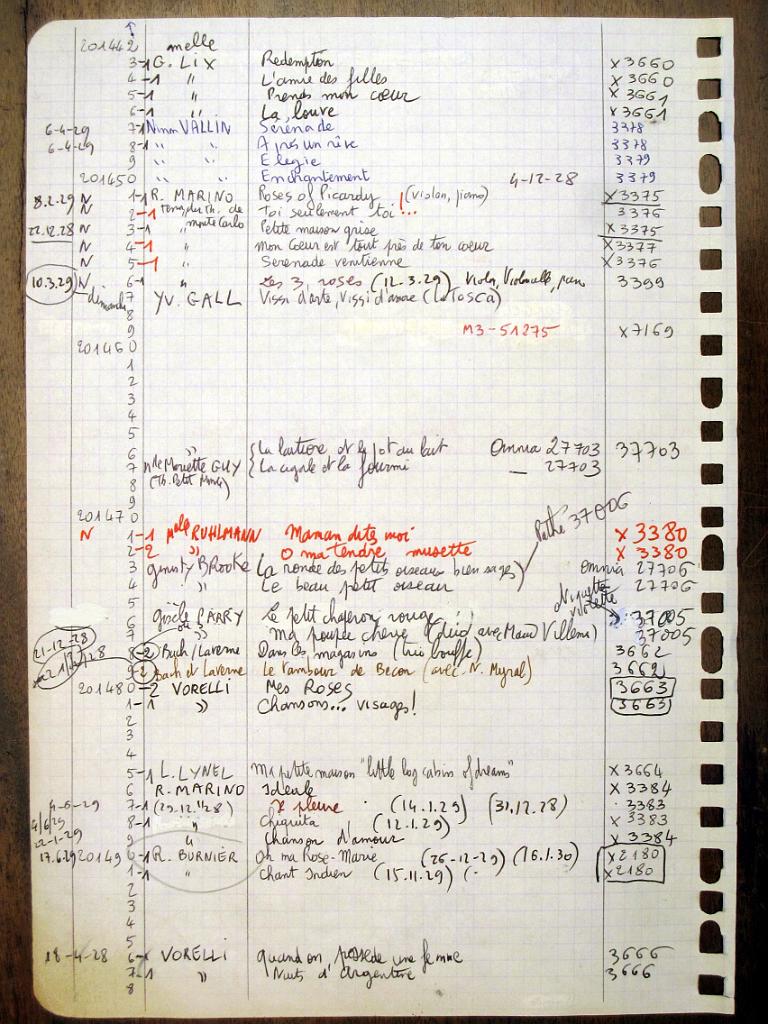 201442 melle
3-1 G. LIX Redemption x 3660
4-1 " L'amie des filles x 3660
5-1 " Prends mon cœur x 3661
6-1 " La louve x 3661
6-4-29 7-1 Ninon VALLIN Sérénade 3378
6-4-29 8-1 " " Après un rêve 3378
9 " " Elégie 3379
201450 " " Enchantement 4-12-28 3379
8.2.29 N 1-1 R. MARINO Roses of Picardy (violon, piano) x 3375
N 2-1 Tenor du Th. de Toi seulement toi !... 3376
22.12.28 N 3-1 " monte Carlo Petite maison grise x 3375
N 4-1 " Mon Cœur est tout près de ton cœur x 3377
N 5-1 " Serenade venitienne x 3376
10.3.29 N 6-1 " Les 3 roses (12.3.29) Violon, Violoncelle, piano 3399
7 YV. GALL Vissi d'arte, Vissi d'amore (La Tosca)
8
9 M3-51275 x 7169
201460
1
2
3
4
5
6 " La laitière et le pot au lait Omnia 27703 37703
7 Mouette GUY La cigale et la fourmi — 27703
8 (Th. Petit Monde)
9
201470
N 1-1 Melle RUHLMANN Maman dites moi x 3380
2-2 " O ma tendre musette x 3380
Pathé 37006
3 BROOKE La ronde des petits oiseaux bien sages Omnia 27706
4 " Le beau petit oiseau 27706
5
6 gisèle PARRY Le petit chaperon rouge 37005
7 " Ma poupée chérie (duo avec Maud Villems) 37005
21-12-28 8-2 Bach / Laverne Dans les magasins 3662
9-2 Bach et Laverne Le tambour de Becon (avec N. Myral) 3662
201480-2 VORELLI Mes Roses 3663
1-1 " Chansons... visages! 3663
2
3
4
5-1 L. LYNEL Ma petite maison "little log cabin of dreams" x 3664
6 R. MARINO Ideale x 3384
4-6-29 7-1 (29.12.28) Il pleure (14.1.29) (31.12.28) 3383
4/6/29 8-1 " Chiquita (12.1.29) x 3383
22-1-29 9 " Chanson d'amour x 3384
17.6.29 201490-1 R. BURNIER Oh ma Rose-Marie (26-12-29) (16.1.30) x 2180
1-1 " Chant Indien (15.11.29) x 2180
2
3
4
5
18-4-28 6-1 VORELLI quand on possède une femme 3666
7-1 " Nuits d'Argentine 3666
8